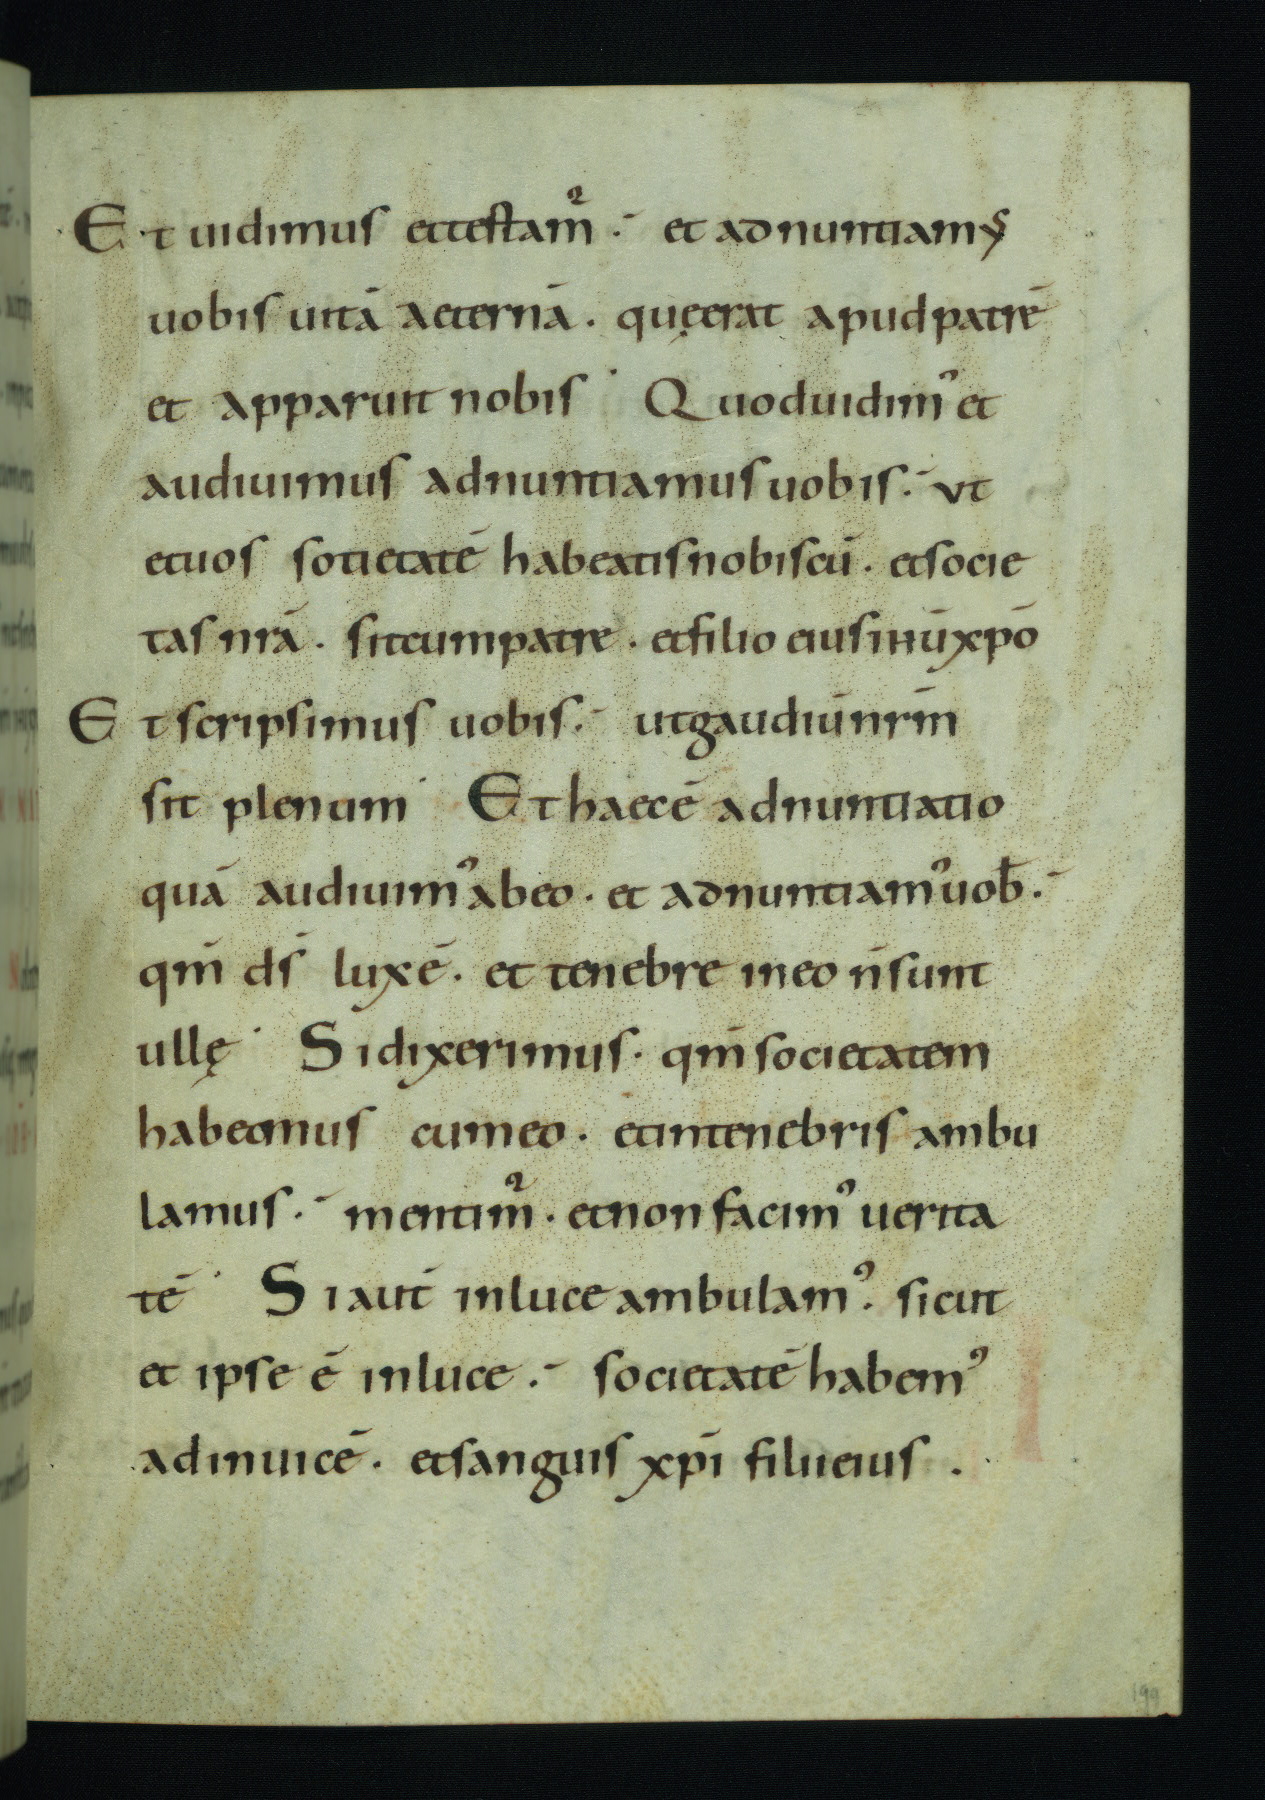 Et uidimus et testam̄ꝛ :- et adnuntiamꝰ
uobis uitā aeternā . quę erat apud patrē
et apparuit nobis · Quod uidim̄ꝰ et
audiuimus adnuntiamus uobis :- ut
et uos sotietatē habeatis nobiscū . et socie
tas nr̄a . sit cum patre . et filio eius ih̄u xp̄o
Et scripsimus uobis :- ut gaudiū nr̄m
sit plenum · Et haec ē adnuntiatio
quā audiuimꝰ ab eo . et adnuntiamꝰ uob̄ :-
qm̄ ds̄ lux ē . et tenebre in eo n̄ sunt
ullę · Si dixerimus . qm̄ societatem
habeamus cum eo . et in tenebris ambu
lamus :- mentim̄ꝛ . et non facimꝰ uerita
tē · Si aut̄ in luce ambulamꝰ . sicut
et ipse ē in luce :- societatē habemꝰ
ad inuicē . et sanguis xp̄i filii eius .
199